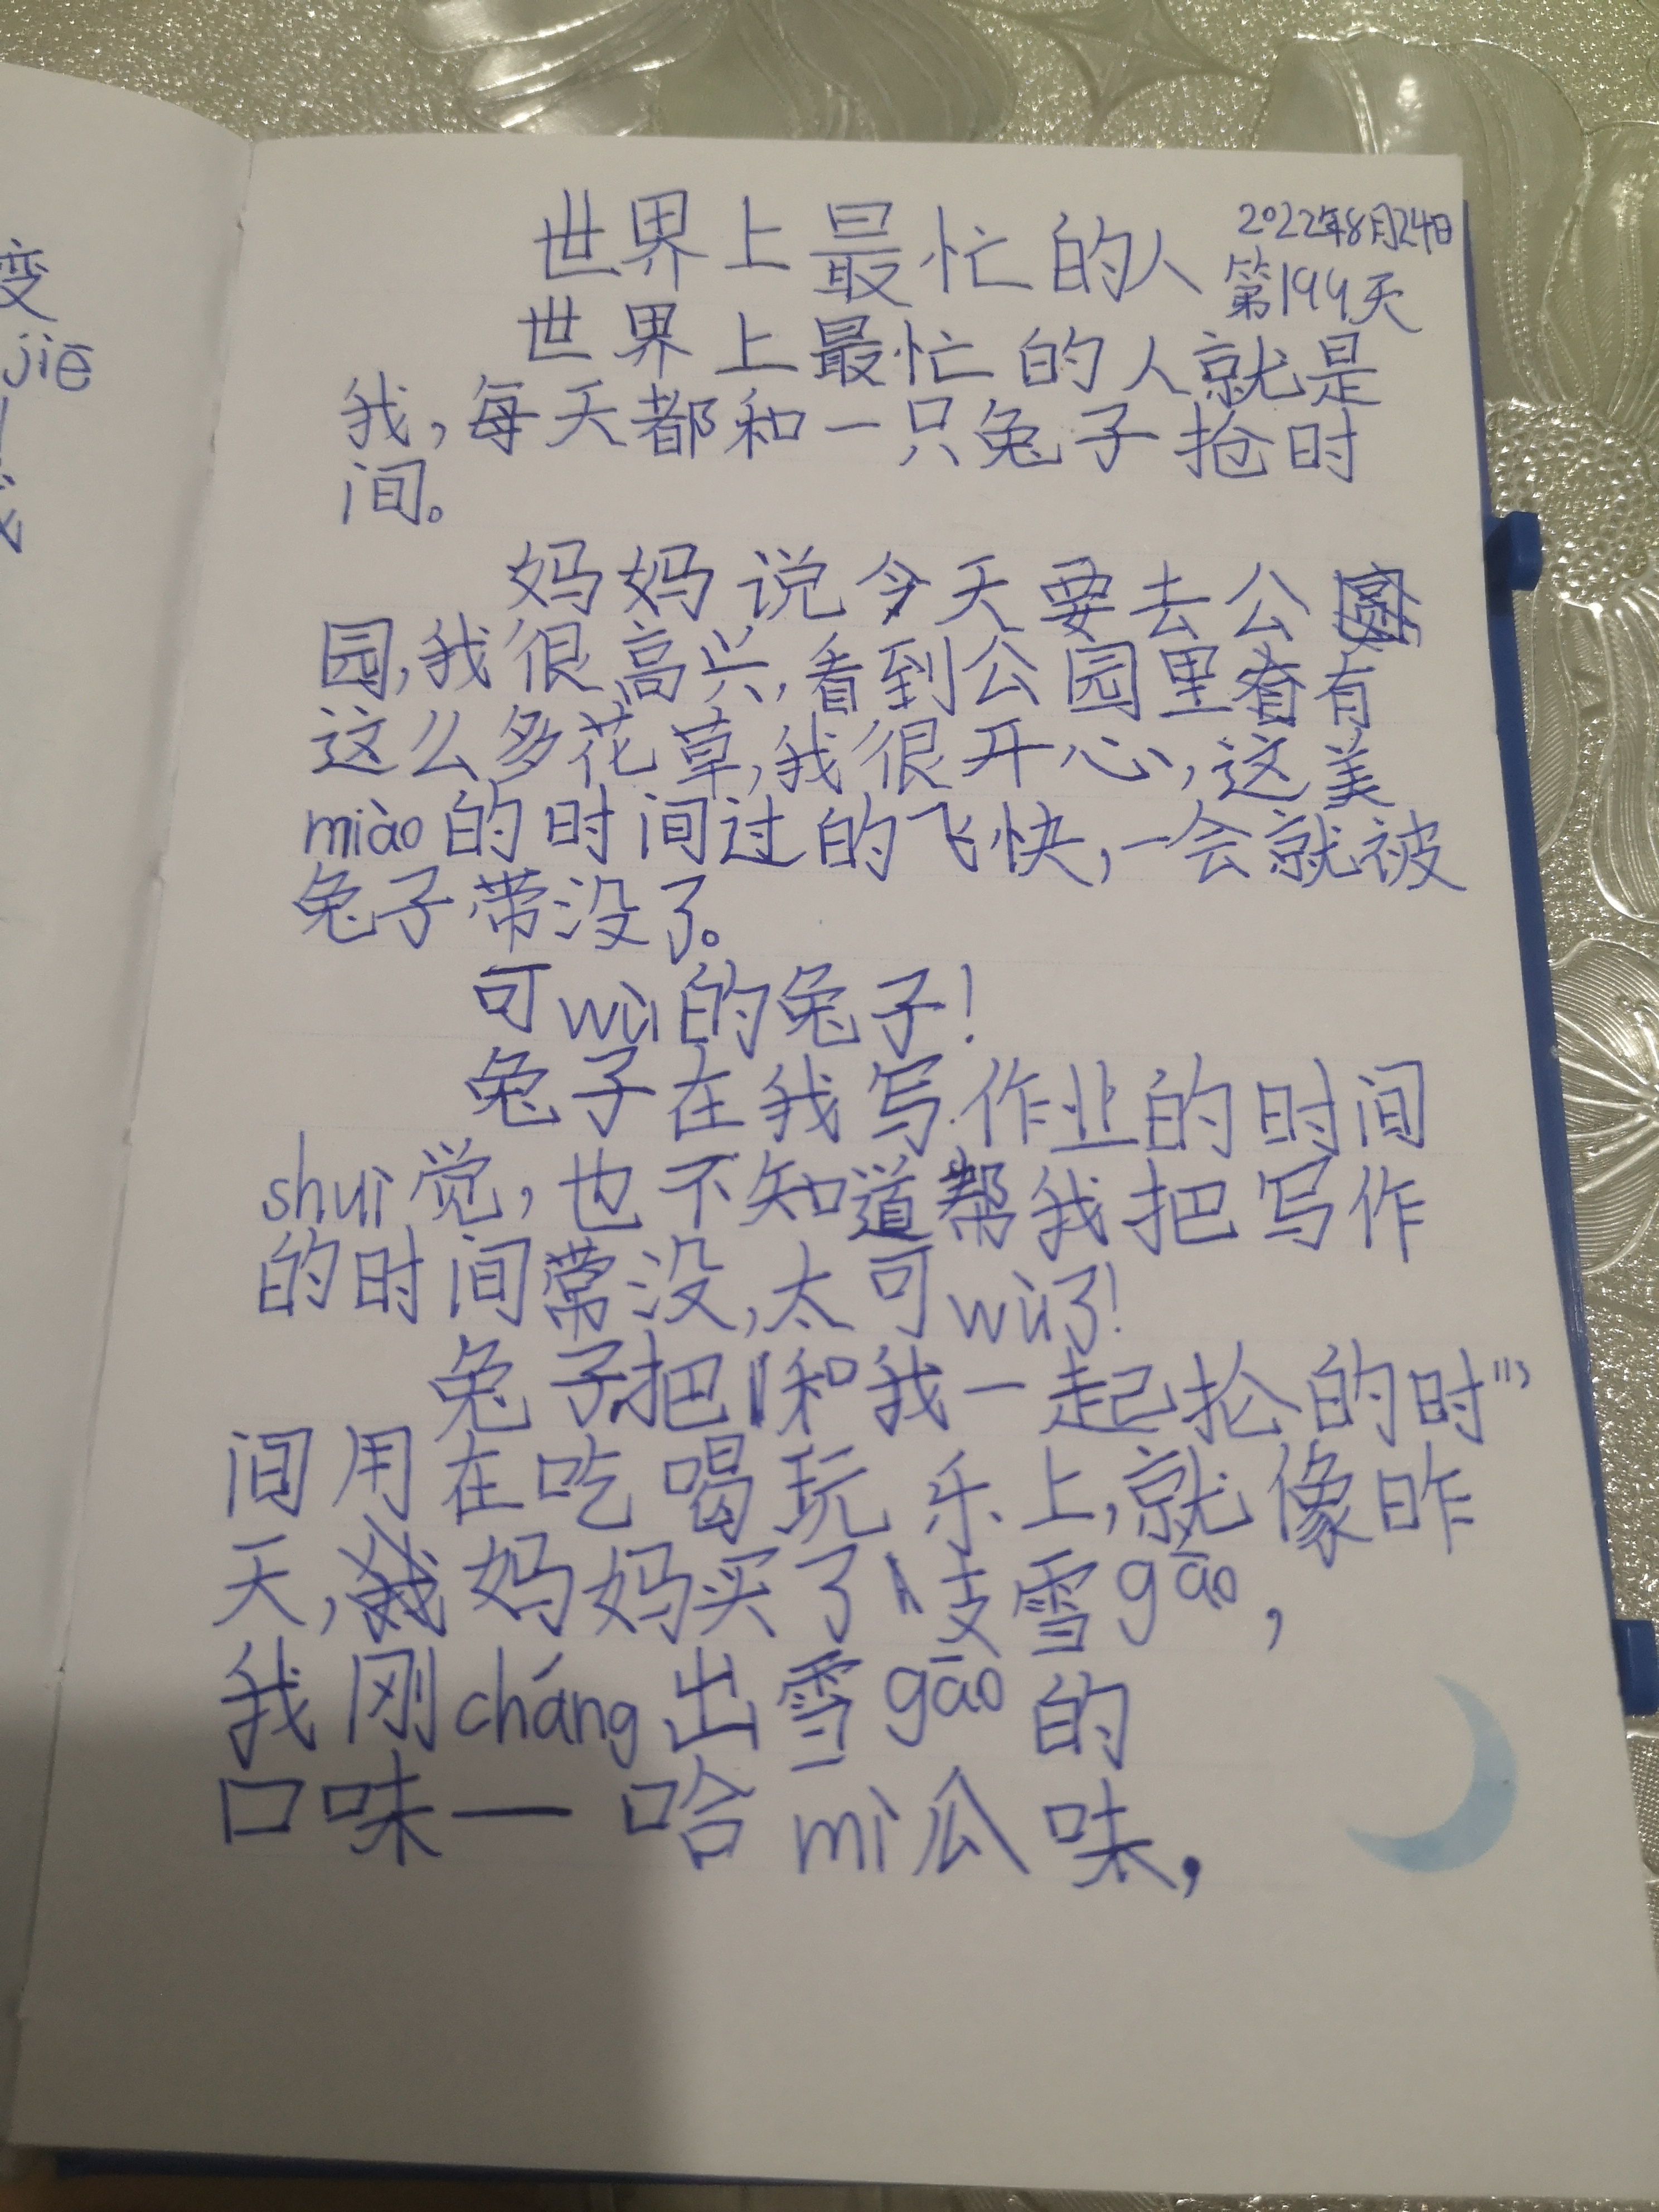 变
jiē
世界上最忙的人 2022年8月24日
第194天
世界上最忙的人就是
我，每天都和一只兔子抢时
间。
妈妈说今天要去公
园，我很高兴，看到公园里有
这么多花草，我很开心，这美
miào的时间过的飞快，一会就被
兔子带没了。
可wù的兔子！
兔子在我写作业的时间
shuì觉，也不知道帮我把写作
的时间带没，太可wù了！
兔子把和我一起抢的时
间用在吃喝玩乐上，就像昨
天，妈妈买了1支雪gāo，
我刚cháng出雪gāo的
口味—哈mì瓜味，